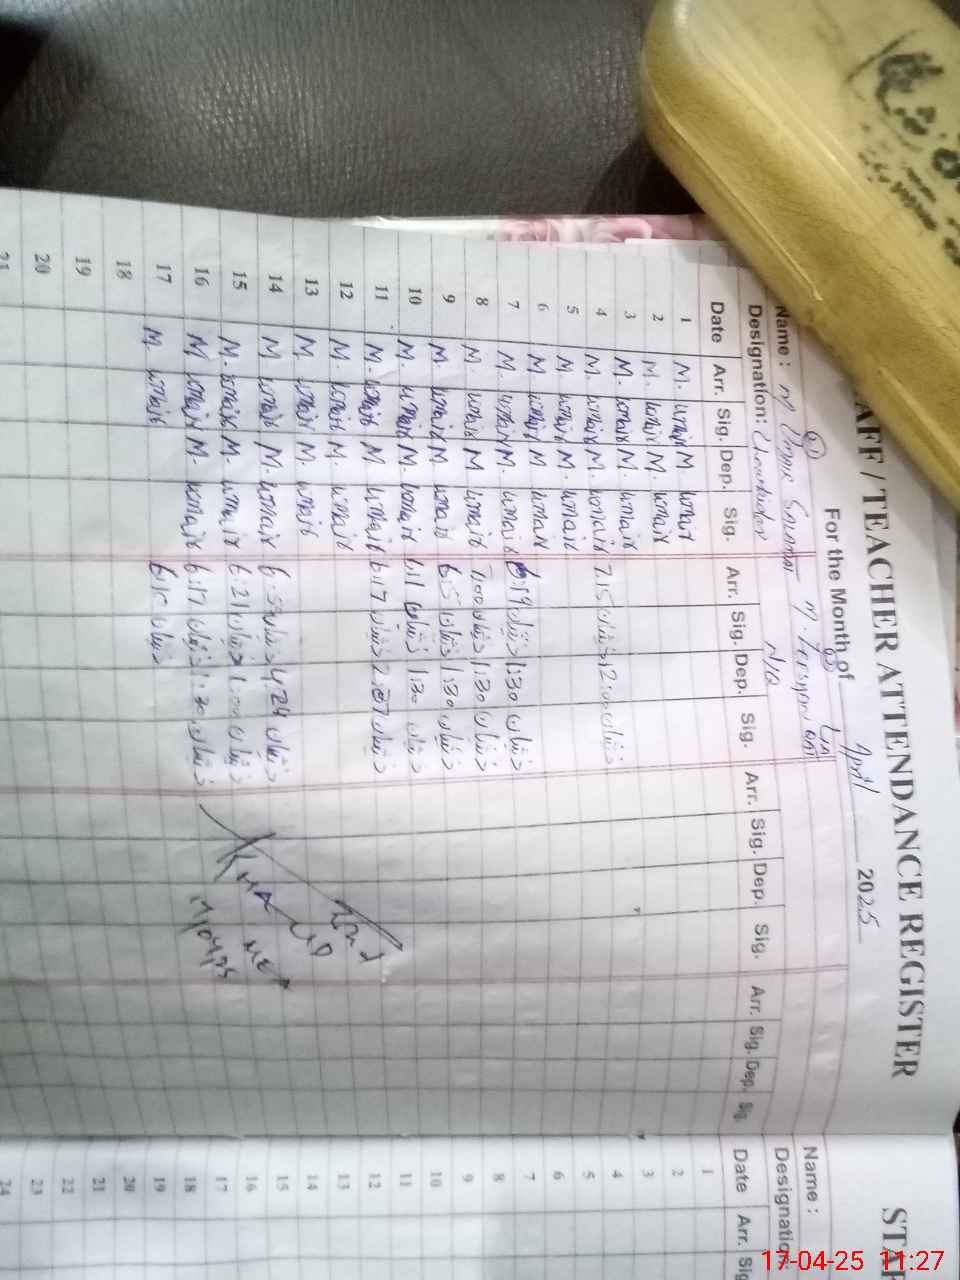 STAFF / TEACHER ATTENDANCE REGISTER
For the Month of April 2025
Name : M Umair
Designation: Chowkidar N/Q
Date Arr. Sig. Dep. Sig. Arr. Sig. Dep. Sig. Arr. Sig. Dep. Sig. Arr. Sig. Dep. Sig.
1 M. umair M umair
2 M. umair M. umair
3 M. umair M. umair
4 M. umair M. umair 7:15 ذیشان 12:00 ذیشان
5 M. umair M. umair
6 M. umair M umair
7 M. umair M. umair 6:19 ذیشان 1:30 ذیشان
8 M. umair M umair 7:00 ذیشان 1:30 ذیشان
9 M. umair M. umair 6:51 ذیشان 1:30 ذیشان
10 M. umair M. umair 6:11 ذیشان 1:30 ذیشان
11 M. umair M umair 6:17 ذیشان ذیشان
12 M. umair M. umair
13 M umair M. umair
14 M umair M. umair ذیشان 4:24 ذیشان
15 M. umair M. umair 6:21 ذیشان 1:00 ذیشان
16 M umair M. umair 6:17 ذیشان 1:30 ذیشان
17 M. umair ذیشان
18
19
20
21
Name :
Designation:
Date Arr. Sig
1
2
3
4
5
6
7
8
9
10
11
12
13
14
15
16
17
18
19
20
21
22
23
24
17-04-25 11:27